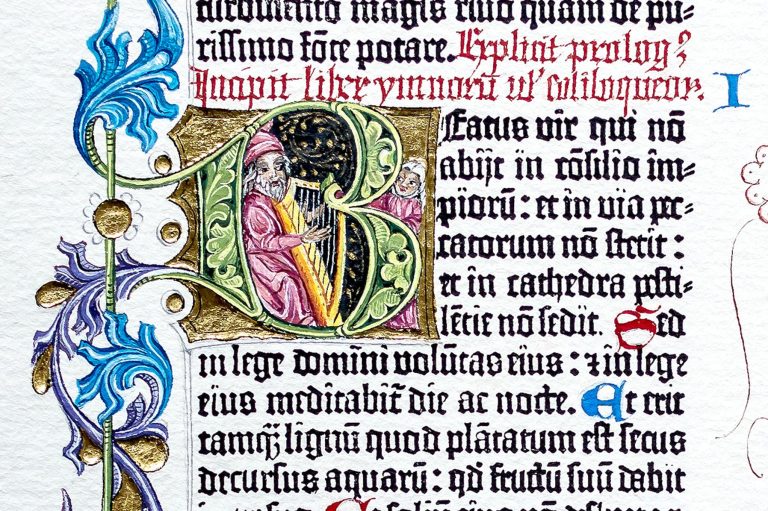 magis eius quam de pu-
rissimo fōte potare. Explicit prolog⁹
Incipit liber ymnorū ul' soliloqueor.
I
Beatus vir qui nō
abijt in cōsilio im-
piorū: et in via pec-
catorum nō stetit:
et in cathedra pesti-
lētie nō sedit. Sed
in lege domini volūtas eius: ⁊ in lege
eius meditabit̄ die ac nocte. Et erit
tamq̄ lignū quod plātatum est secus
decursus aquarū: qd̄ fructū suū dabit